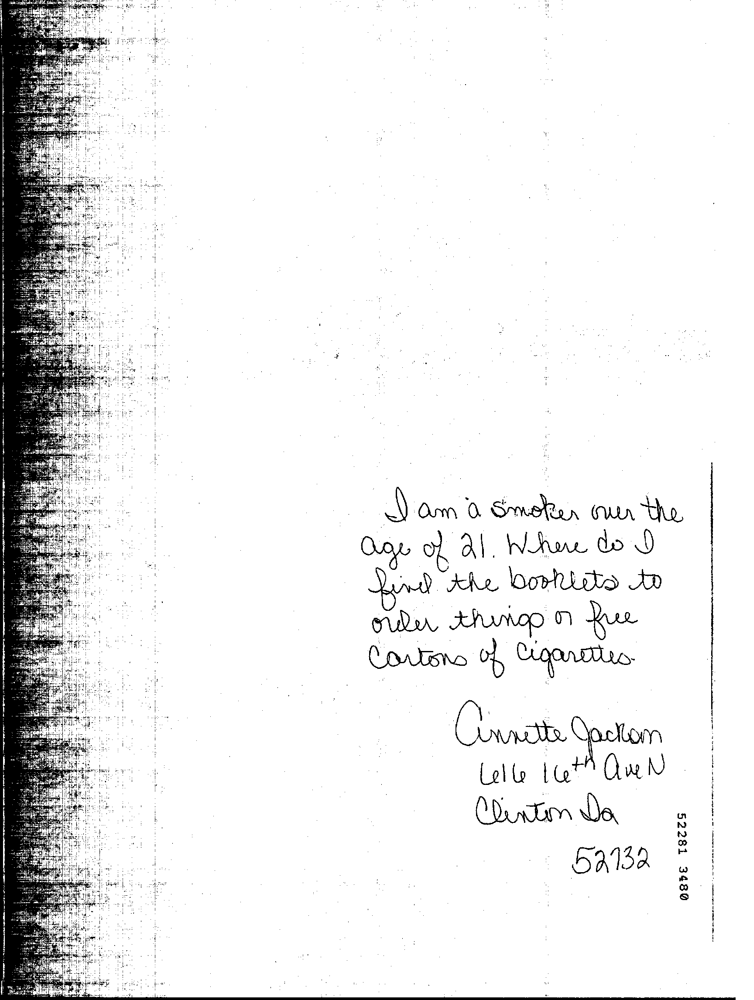 I am a smoker over the
age of 21. Where do I
find the booklets to
order things or free
Cartons of Cigarettes.
Annette Jackson
616 16th Ave N
Clinton Ia
52732
52281 3480